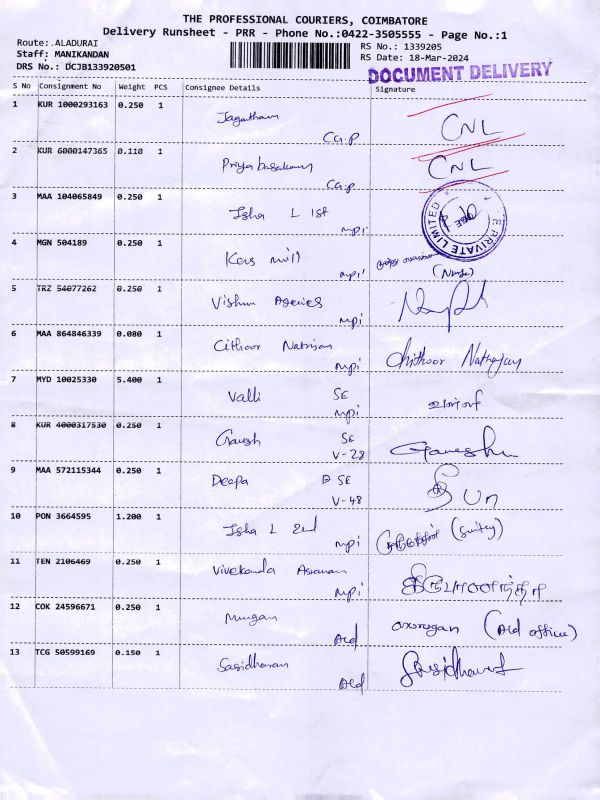 THE PROFESSIONAL COURIERS, COIMBATORE
Delivery Runsheet - PRR - Phone No.:0422-3505555 - Page No.:1
Route:.ALADURAI
RS No.: 1339205
Staff: MANIKANDAN
RS Date: 18-Mar-2024
DRS No.: DCJB133920501
DOCUMENT DELIVERY
S No Consignment No Weight PCS Consignee Details Signature
1 KUR 1000293163 0.250 1 Jagatham CNL
Ca.p
2 KUR 6000147365 0.110 1 CNL
Ca.p
3 MAA 104065849 0.250 1 Isha L 1st
mpi
PRIVATE LIMITED
4 MGN 504189 0.250 1 Kers mill
mpi
5 TRZ 54077262 0.250 1 Vishnu Agencies
mpi
6 MAA 864846339 0.080 1 Cithoor Natrajan Chithoor Nathajan
mpi
7 MYD 10025330 5.400 1 Valli SE
mpi
8 KUR 4000317530 0.250 1 Ganesh SE Ganeshn
V-28
9 MAA 572115344 0.250 1 Deepa SE தீபா
V-48
10 PON 3664595 1.200 1 Isha L 2nd
mpi
11 TEN 2106469 0.250 1 Vivekanda Asraman
mpi
12 COK 24596671 0.250 1 Murugan (Ald office)
Ald
13 TCG 50599169 0.150 1 Sasidharan
Ald